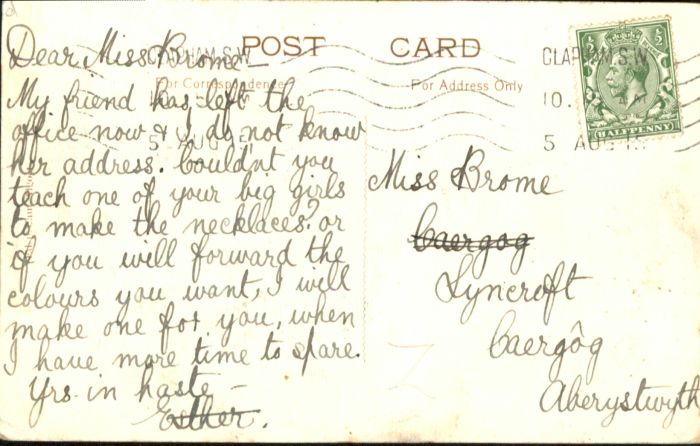 POST CARD
For Correspondence
For Address Only
CLAPHAM. S.W.
CLAPHAM. S.W.
10.
AM
5 AUG
5 AUG
HALFPENNY
Dear Miss Brome –
My friend has left the
office now & I do not know
her address. Couldn't you
teach one of your big girls
to make the necklaces? or
if you will forward the
colours you want, I will
make one for you, when
I have more time to spare.
Yrs in haste –
Esther.
Miss Brome
Caergog
Lyncroft
Caergôg
Aberystwyth